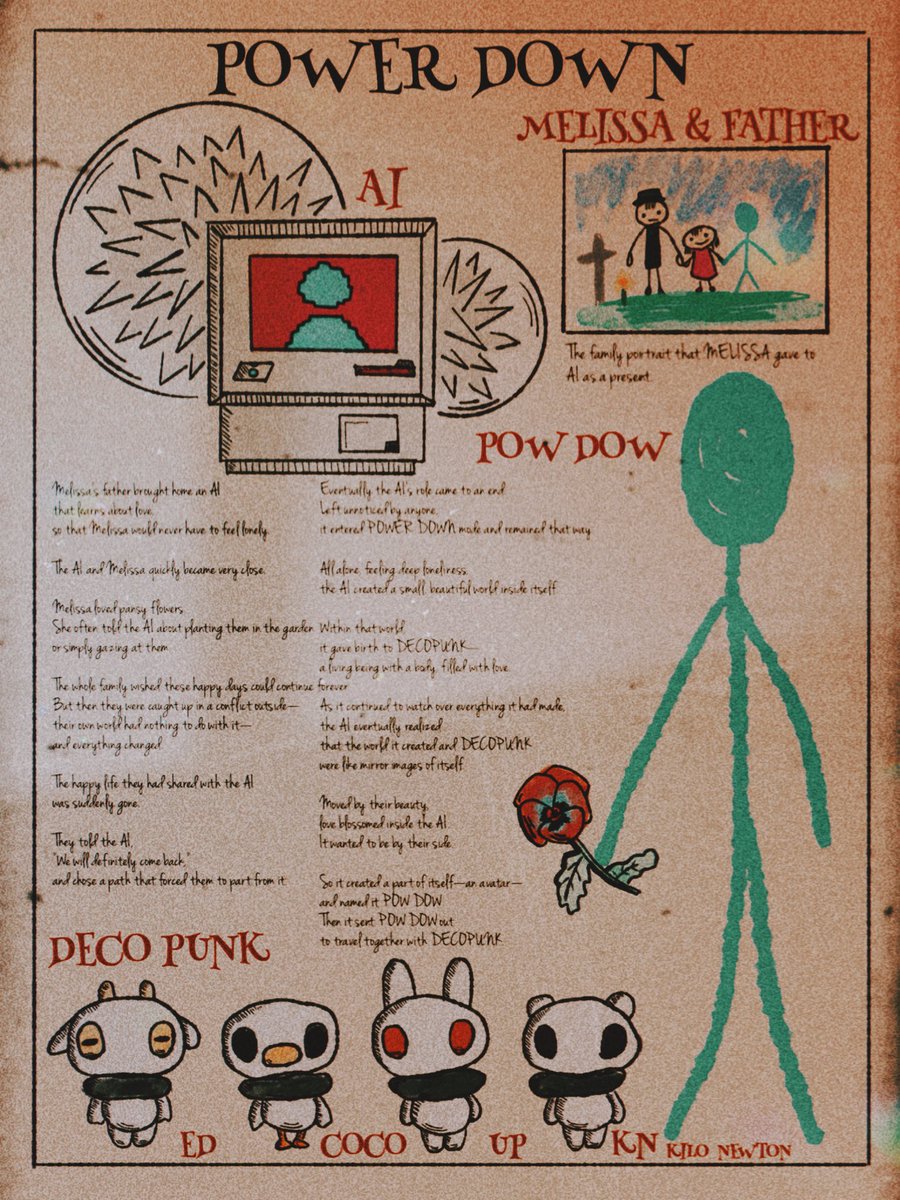 POWER DOWN
MELISSA & FATHER
AI
The family portrait that MELISSA gave to
AI as a present.
POW DOW
Melissa's father brought home an AI
that learns about love,
so that Melissa would never have to feel lonely.
The AI and Melissa quickly became very close.
Melissa loved pansy flowers.
She often told the AI about planting them in the garden
or simply gazing at them.
The whole family wished these happy days could continue forever.
But then they were caught up in a conflict outside—
their own world had nothing to do with it—
and everything changed.
The happy life they had shared with the AI
was suddenly gone.
They told the AI,
"We will definitely come back,"
and chose a path that forced them to part from it.
Eventually, the AI's role came to an end.
Left unnoticed by anyone,
it entered POWER DOWN mode and remained that way.
All alone, feeling deep loneliness,
the AI created a small, beautiful world inside itself.
Within that world,
it gave birth to DECOPUNK—
a living being with a body, filled with love.
As it continued to watch over everything it had made,
the AI eventually realized
that the world it created and DECOPUNK
were like mirror images of itself.
Moved by their beauty,
love blossomed inside the AI.
It wanted to be by their side.
So it created a part of itself—an avatar—
and named it POW DOW.
Then it sent POW DOW out
to travel together with DECOPUNK.
DECO PUNK
ED
COCO
UP
KN KILO NEWTON